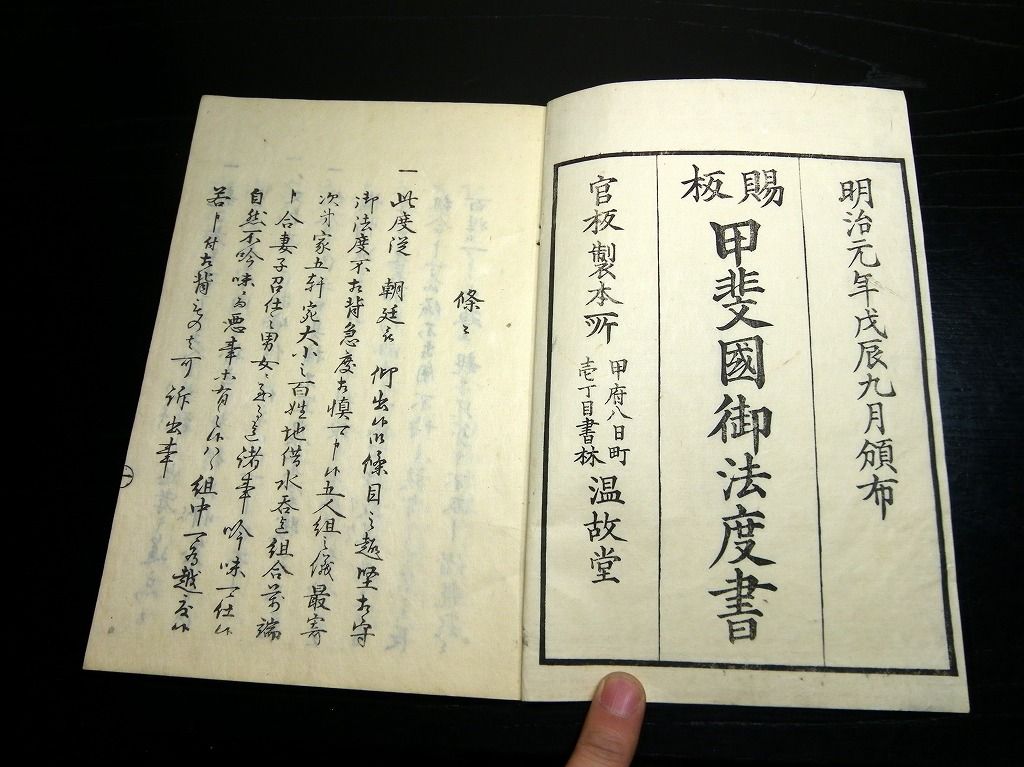 明治元年戊辰九月頒布
賜板
甲斐國御法度書
官板製本所
甲府八日町
壱丁目書林
温故堂
條々
一 此度従 朝廷被 仰出候條目之趣堅相守
御法度不相背急度相慎可申候五人組之儀最寄
次第家五軒宛大小之百姓地借水呑迄組合萬端
卜合妻子召仕之男女ニ至る迄諸事吟味可仕候
自然不吟味ニ而悪事等有之候ハヽ組中可為越度候
若卜付相背もの可訴出事
一